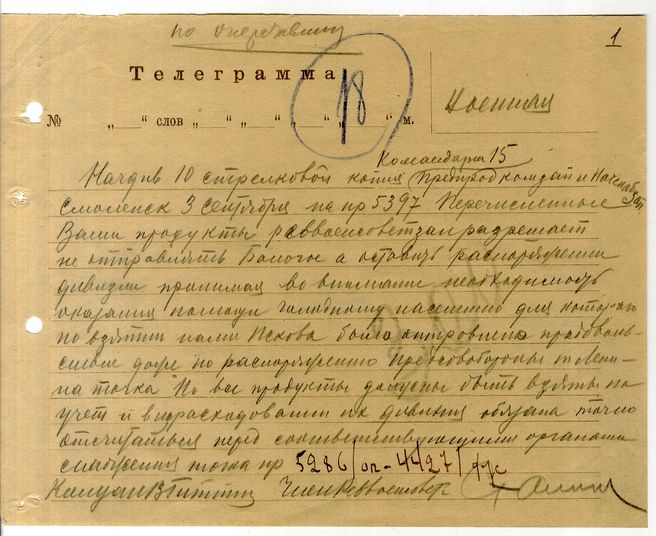 по оперативной
1
Телеграмма
18
№ „ “ слов „ “ „ “ „ “ м.
Военная
Командарм 15
Начдив 10 стрелковой копия Предпродкомдап и Начснаб Зап
Смоленск 3 сентября на пр 5397 Перечисленные
Вами продукты реввоенсовет разрешает
не отправлять Бологое а оставить распоряжении
дивизии принимая во внимание необходимость
оказания помощи голодному населению для которого
по взятии нами Пскова было отправлено продоволь-
ствие даже по распоряжению Предсовобороны т Лени-
на точка Но все продукты должны быть взяты на
учет и в израсходовании их дивизия обязана точно
отсчитаться перед соответствующими органами
снабжения точка пр 5286/оп-4427/
Членреввоенсовет